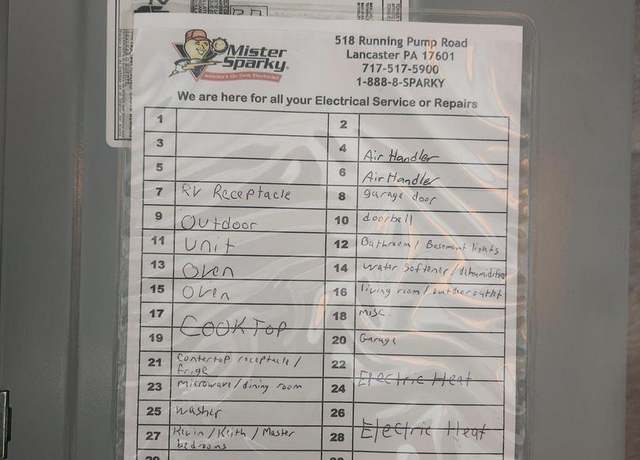 Mister
Sparky
518 Running Pump Road
Lancaster PA 17601
717-517-5900
1-888-8-SPARKY
We are here for all your Electrical Service or Repairs
1
2
3
4 Air Handler
5
6 Air Handler
7 RV Receptacle
8 garage door
9 Outdoor
10 doorbell
11 Unit
12 Bathroom / Basement lights
13 Oven
14 water softener / dehumidifier
15 Oven
16 living room / outdoor outlet
17 COOKTOP
18 misc.
19
20 Garage
21 Contertop receptacle /
frige
22
23 microwave / dining room
24 Electric Heat
25 washer
26
27 Kevin / Keith / Master
bedrooms
28 Electric Heat